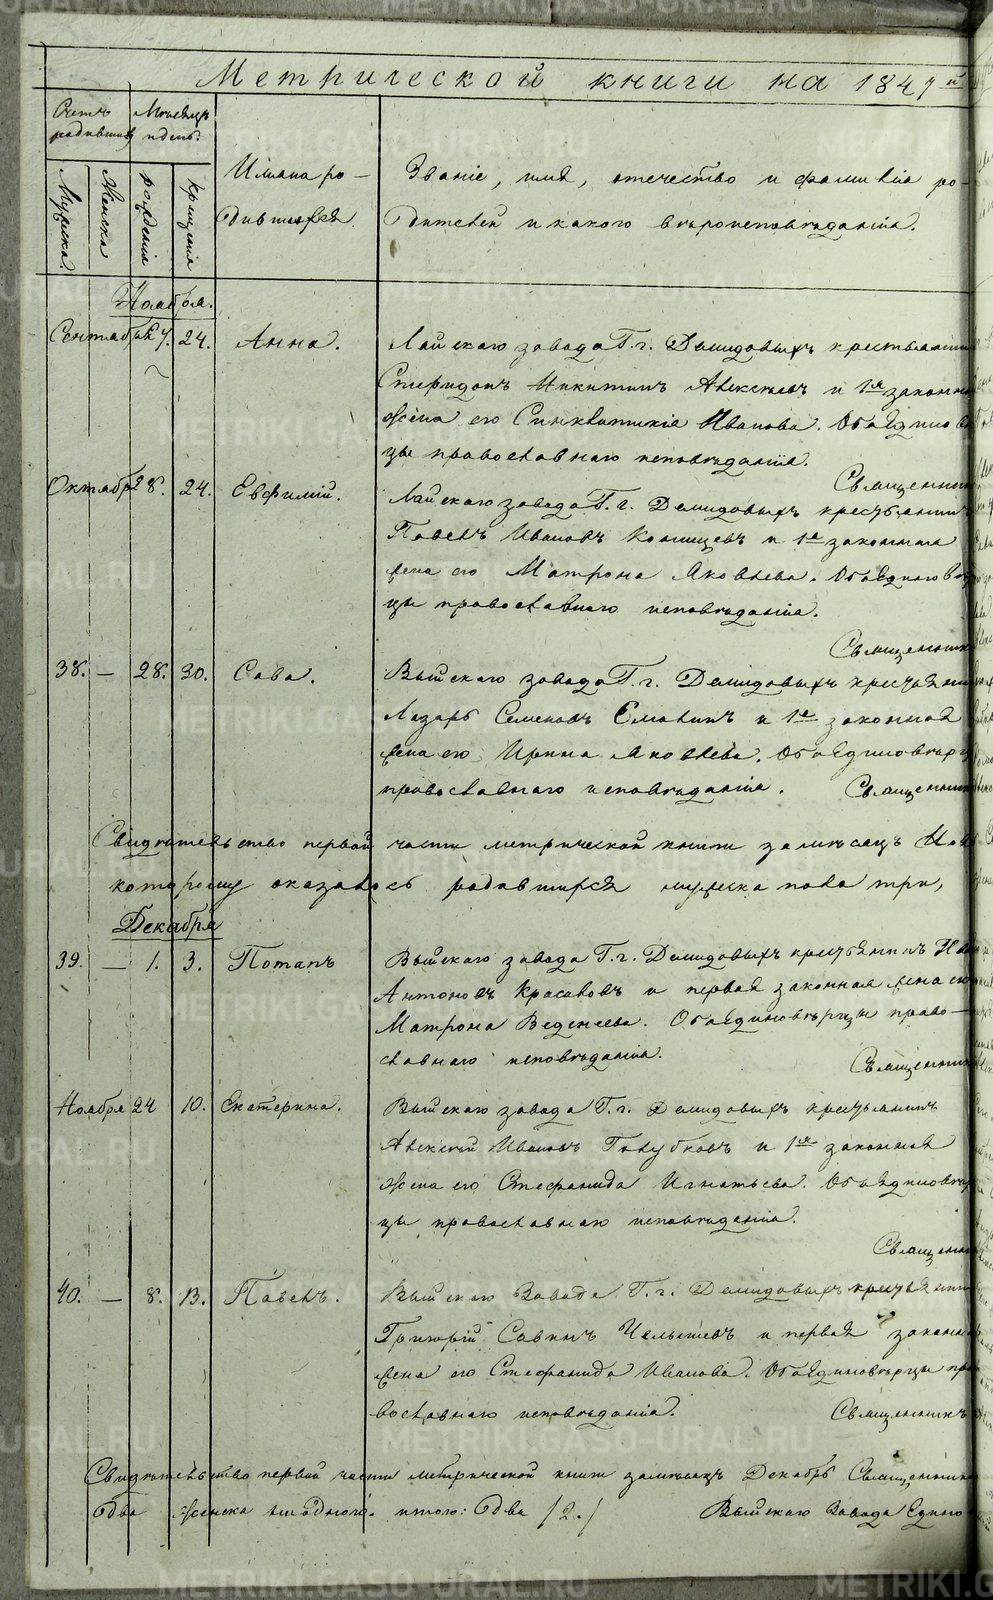 Метрической книги на 1847й
Счетъ родившихся
Мѣсяцъ и день.
Мужеска.
Женска
рожденія
крещенія
Имяна ро-
дившихся.
Званіе, имя, отечество и фамилія ро-
дителей и какого вѣроисповѣданія.
Ноября.
Сентября 24. Анна. Лайскаго завода Г.г. Демидовыхъ крестьянинъ
Спиридонъ Никитинъ Алексѣевъ и 1я законна
жена его Синклитикія Иванова. Оба единовѣр
цы православнаго исповѣданія.
Священник
Октября 28. 24. Евфимій. Лайскаго завода Г.г. Демидовыхъ крестьянинъ
Павелъ Ивановъ и 1я законная
жена его Матрона Яковлева. Оба единовѣр
цы православнаго исповѣданія.
Священник
38. — 28. 30. Сава. Выйскаго завода Г.г. Демидовыхъ крестьяни
Лазарь Семеновъ и 1я законная
жена его Ирина Яковлева. Оба единовѣрц
православнаго исповѣданія. Священник
Свидѣтельство первой части метрической книги за мѣсяцъ Ноя
которому оказалось родившихся мужеска пола три,
Декабря
39. — 1. 3. Потапъ Выйскаго завода Г.г. Демидовыхъ крестьянинъ
Антоновъ Красиковъ и первая законная жена его
Матрона Веденеева. Оба единовѣрцы право-
славнаго исповѣданія.
Священник
Ноября 24 10. Екатерина. Выйскаго завода Г.г. Демидовыхъ крестьянинъ
Алексѣй Ивановъ Голубковъ и 1я законная
жена его Стефанида Игнатьева. Оба единовѣр
цы православнаго исповѣданія.
Священни
40. — 8. 13. Павелъ. Выйскаго Завода Г.г. Демидовыхъ крестьянин
Григорій Савинъ Челышевъ и первая законн
жена его Стефанида Иванова. Оба единовѣрцы пра
вославнаго исповѣданія. Священникъ
Свидѣтельство первой части метрической книги за мѣсяцъ Декабрь Священник
два женска одного. итого: два /2./ Выйскаго Завода Едино
METRIKI.GASO-URAL.RU